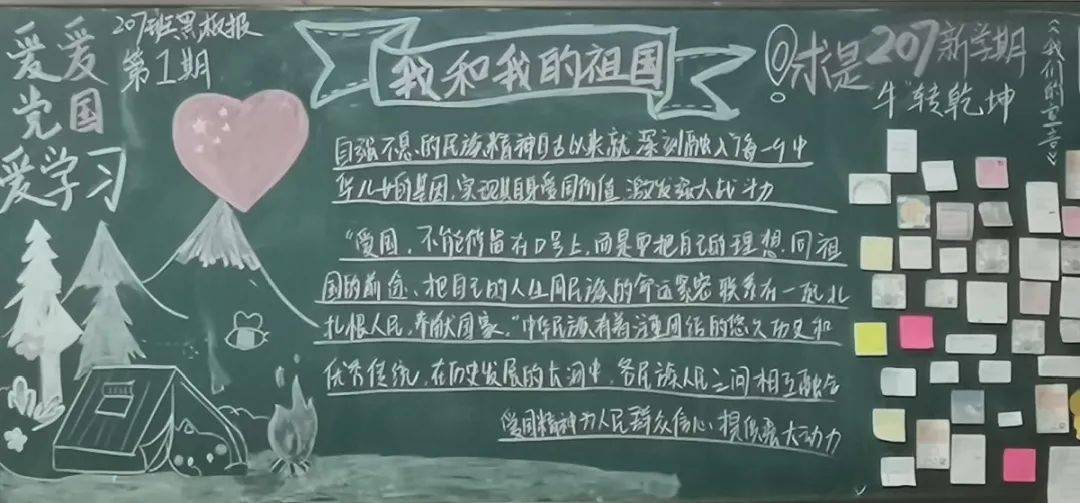 爱爱
党国
爱学习
207班黑板报
第1期
我和我的祖国
求是207新学期
牛转乾坤
《我们的宣言》
自强不息的民族精神自古以来就深刻融入了每一个中
华儿女的基因,实现其自身爱国价值 激发强大战斗力
“爱国,不能停留在口号上,而是要把自己的理想同祖
国的前途、把自己的人生同民族的命运紧密联系在一起扎
扎根人民,奉献国家。”中华民族有着注重团结的悠久历史和
优秀传统,在历史发展的大河中,各民族人民之间相互融合
爱国精神为人民群众信心,提供强大动力